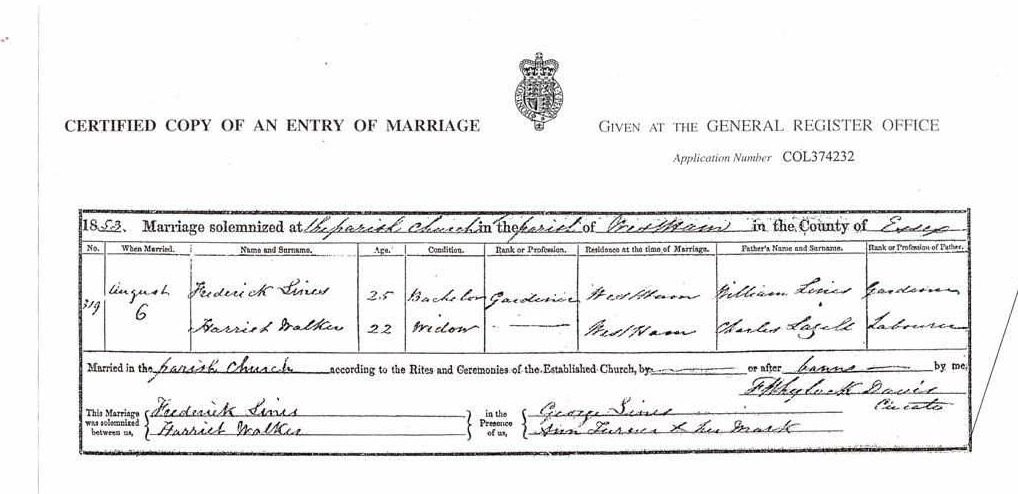 CERTIFIED COPY OF AN ENTRY OF MARRIAGE
GIVEN AT THE GENERAL REGISTER OFFICE
Application Number COL374232
1853. Marriage solemnized at the parish church in the parish of West Ham in the County of Essex
No. When Married. Name and Surname. Age. Condition. Rank or Profession. Residence at the time of Marriage. Father's Name and Surname. Rank or Profession of Father.
319 August 6 Frederick Lines 25 Bachelor Gardener West Ham William Lines Gardener
Harriet Walker 22 Widow — West Ham Charles Labourer
Married in the parish church according to the Rites and Ceremonies of the Established Church, by or after banns by me,
Davis
Curate
This Marriage was solemnized between us, Frederick Lines Harriet Walker
in the Presence of us, George Lines Ann Turner X her Mark